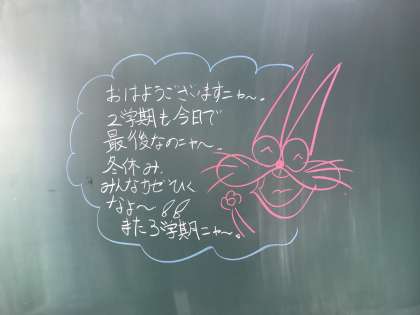 おはようございますニャ〜。
2学期も今日で
最後なのニャ〜。
冬休み.
みんなカゼひく
なよ〜
また3学期ニャ〜。